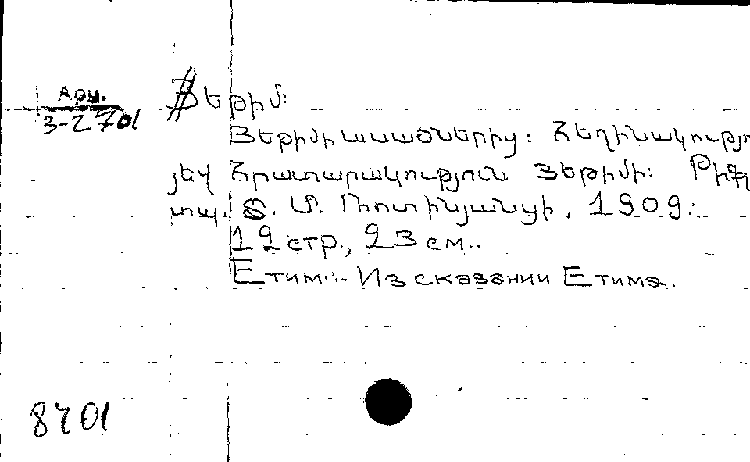 Арм.
3-2701
Յեթիմ:
Յեթիմի ասածներից: Հեղինակությո
յեվ Հրատարակություն Յեթիմի: Թիֆլ
տպ. Տ. Մ. Ռոտինյանցի, 1909:
12 стр., 23 см..
Етим.- Из сказании Етима.
8701